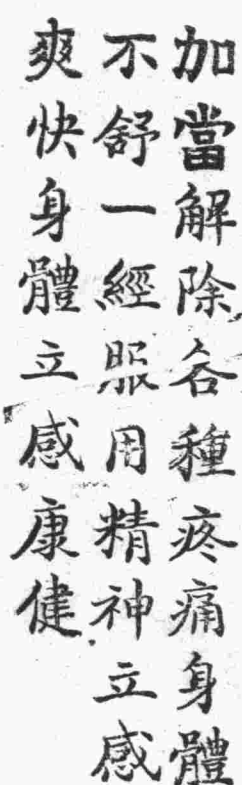 加當解除各種疼痛身體
不舒一經服用精神立感
爽快身體立感康健